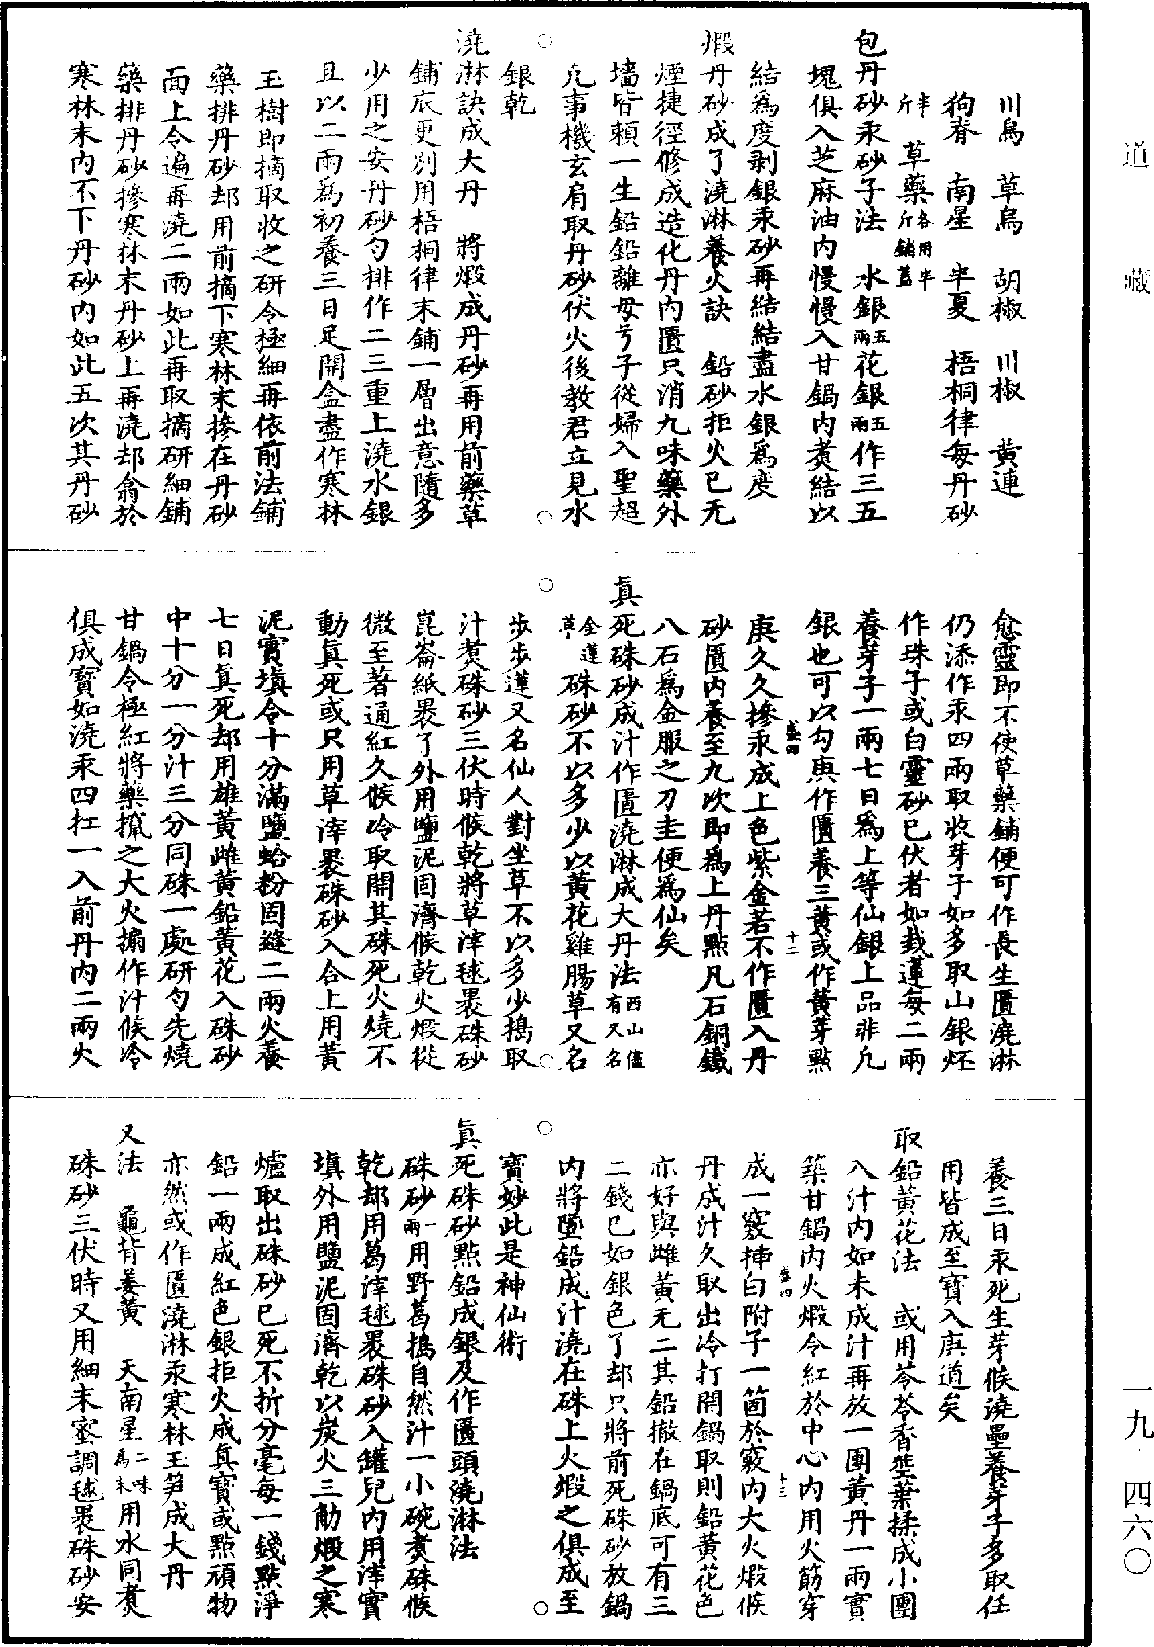 川烏　草烏　胡椒　川椒　黃連
狗脊　南星　半夏　梧桐律每丹砂
半斤　草藥各用半斤鋪蓋
包丹砂汞砂子法　水銀五兩花銀五兩作三五
塊俱入芝麻油內慢慢入甘鍋內煑結以
結爲度剥銀汞砂再結結盡水銀爲度
煅丹砂成了澆淋養火訣　鉛砂拒火已无
煙捷徑修成造化丹內匱只消九味藥外
墻皆賴一生鉛鉛離母兮子從婦入聖超
凡事機玄肩取丹砂伏火後教君立見水
銀乾
澆淋訣成大丹　將煅成丹砂再用前藥草
鋪底更別用梧桐律末鋪一層出意隨多
少用之安丹砂勻排作二三重上澆水銀
且以二兩爲初養三日足開盒盡作寒林
玉樹即摘取收之研令極細再依前法鋪
藥排丹砂却用前摘下寒林末摻在丹砂
面上令遍再澆二兩如此再取摘研細鋪
藥排丹砂摻寒林末丹砂上再澆却翕於
寒林末內不下丹砂內如此五次其丹砂
愈靈即不使草藥鋪便可作長生匱澆淋
仍添作汞四兩取收芽子如多取山銀坯
作珠子或白靈砂已伏者如栽蓮每二兩
養芽子一兩七日爲上等仙銀上品非凡
銀也可以勾庚作匱養三黃或作黃芽點
庚久久摻汞成上色紫金若不作匱入丹
砂匱內養至九次即爲上丹點凡石銅鐵
八石爲金服之刀圭便爲仙矣
真死硃砂成汁作匱澆淋成大丹法西山儘有又名
金蓮草　硃砂不以多少以黃花雞腸草又名
步步蓮又名仙人對坐草不以多少搗取
汁煑硃砂三伏時候乾將草滓毬裹硃砂
崑崙紙裹了外用鹽泥固濟候乾火煅從
微至著通紅久候冷取開其硃死火燒不
動真死或只用草滓裹硃砂入合上用黃
泥實填令十分滿鹽蛤粉固縫二兩火養
七日真死却用雄黃雌黃鉛黃花入硃砂
中十分一分汁三分同硃一處研勻先燒
甘鍋令極紅將藥攛之大火煽作汁候冷
俱成寶如澆汞四扛一入前丹內二兩火
養三日汞死生芽候澆壘養芽子多取任
用皆成至寶入庚道矣
取鉛黃花法　或用苓苓香莖葉揉成小團
入汁內如未成汁再放一團黃丹一兩實
築甘鍋內火煅令紅於中心內用火筯穿
成一竅挿白附子一箇於竅內大火煅候
丹成汁久取出冷打開鍋取則鉛黃花色
亦好與雌黃无二其鉛撤在鍋底可有三
二錢已如銀色了却只將前死硃砂放鍋
內將墜鉛成汁澆在硃上火煅之俱成至
寶妙此是神仙術
真死硃砂點鉛成銀及作匱頭澆淋法
硃砂一兩用野葛搗自然汁一小碗煑硃候
乾却用葛滓毬裹硃砂入罐兒內用滓實
填外用鹽泥固濟乾以炭火三觔煅之寒
爐取出硃砂已死不折分毫每一錢點淨
鉛一兩成紅色銀拒火成真寶或點頑物
亦然或作匱澆淋汞寒林玉笋成大丹
又法　龜背姜黃　天南星二味爲末用水同煑
硃砂三伏時又用細末蜜調毬裹硃砂安
道藏
一九·四六〇